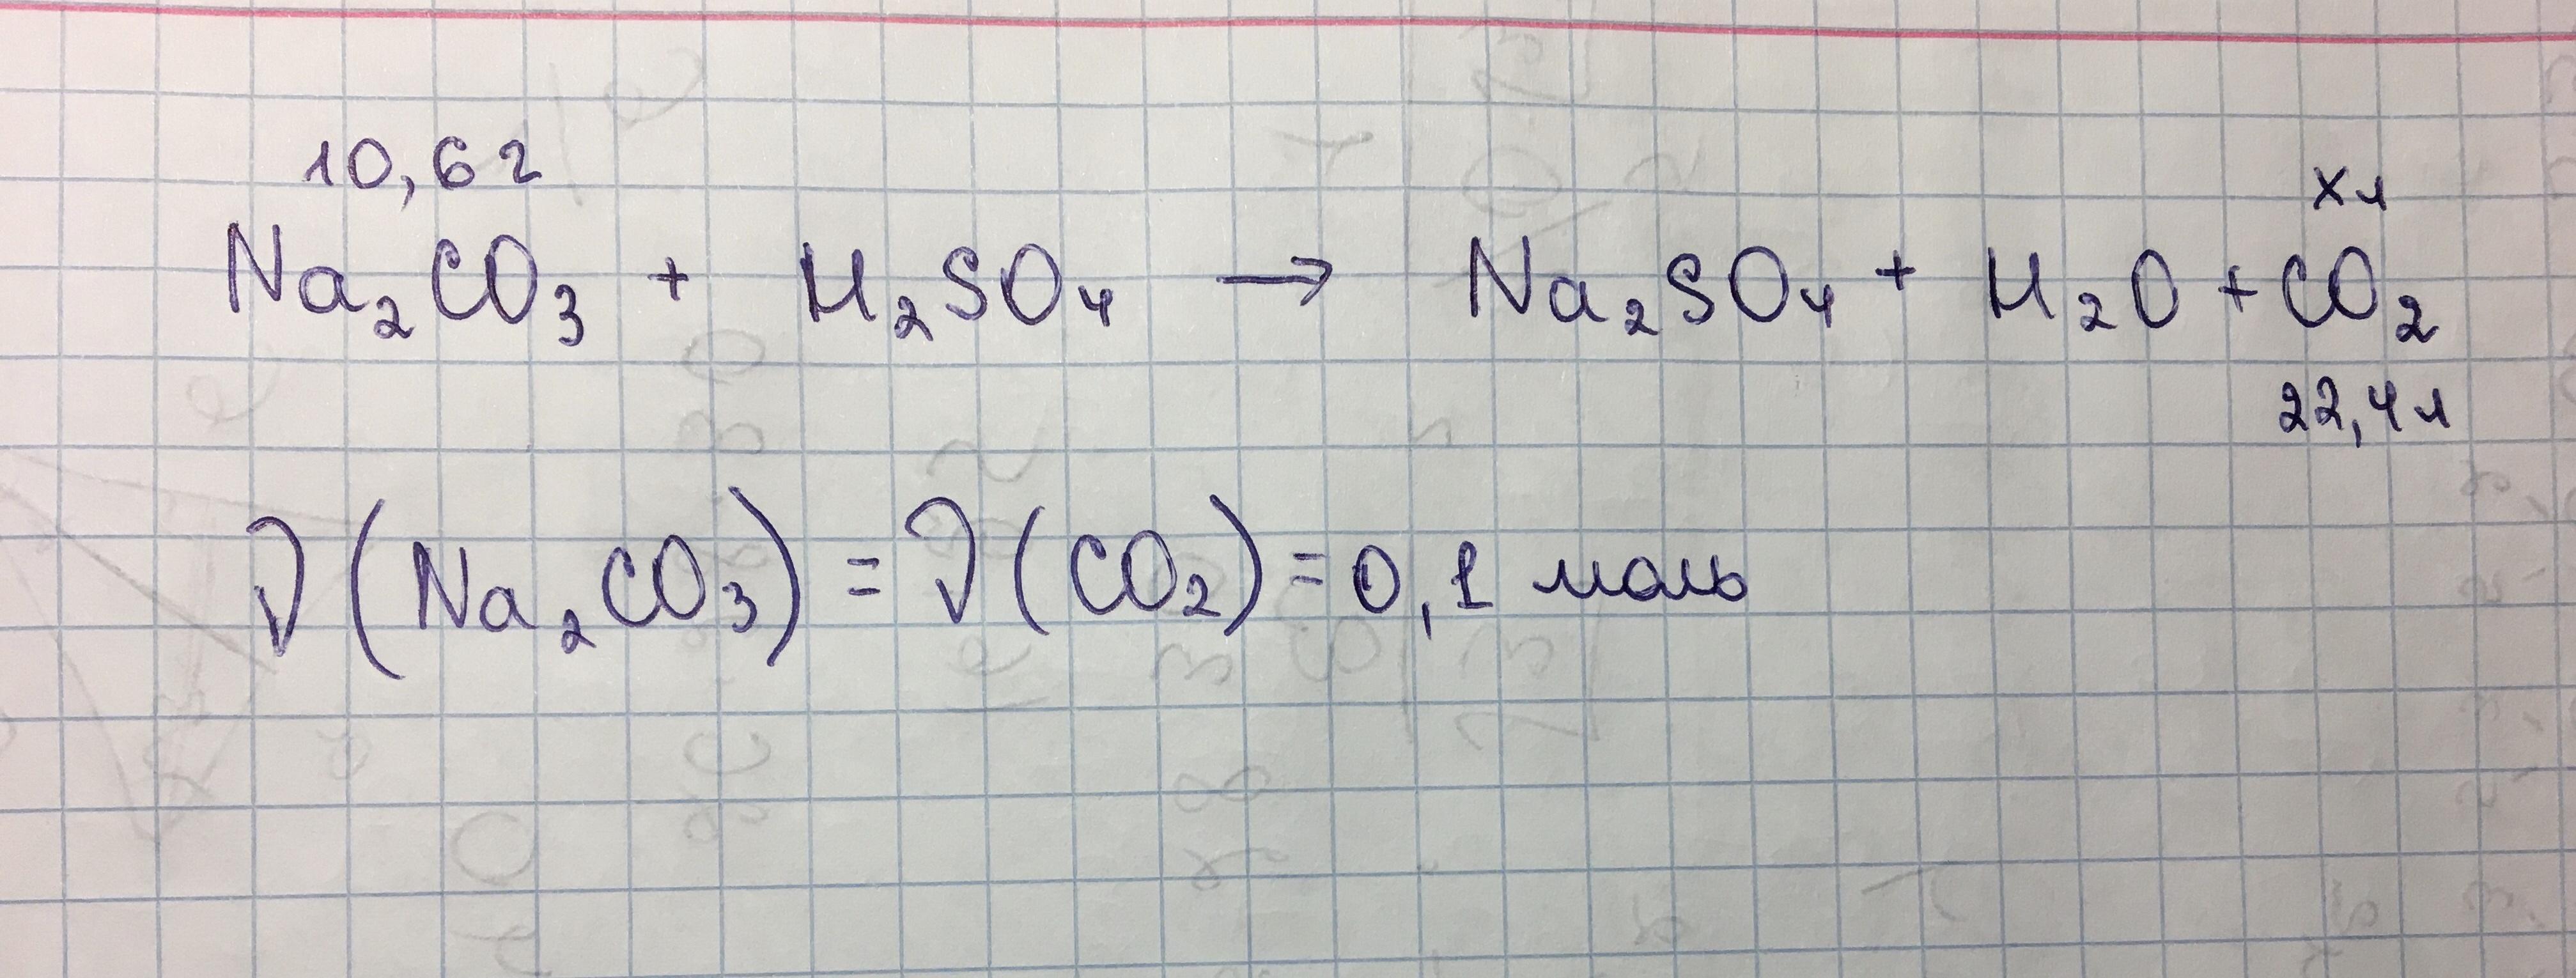 10,6 г
х л
Na₂CO₃ + H₂SO₄ → Na₂SO₄ + H₂O + CO₂
22,4 л
ν(Na₂CO₃) = ν(CO₂) = 0,1 моль